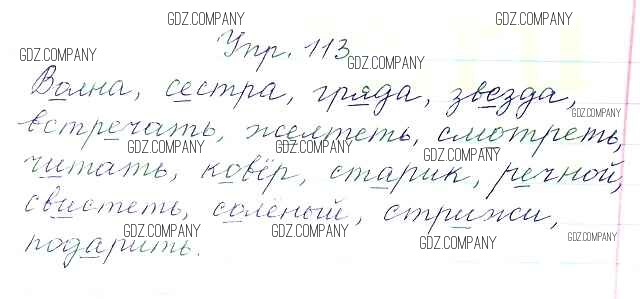 GDZ.COMPANY GDZ.COMPANY
GDZ.COMPANY Упр. 113 GDZ.COMPANY
Волна, сестра, гряда, звезда,
GDZ.COMPANY GDZ.COMPANY
встречать, желтеть, смотреть,
GDZ.COMPANY GDZ.COMPANY GDZ.COMPANY
читать, ковёр, старик, речной,
свистеть, солёный, стрижи,
GDZ.COMPANY GDZ.COMPANY GDZ.COMPANY GDZ.COMPANY
подарить.